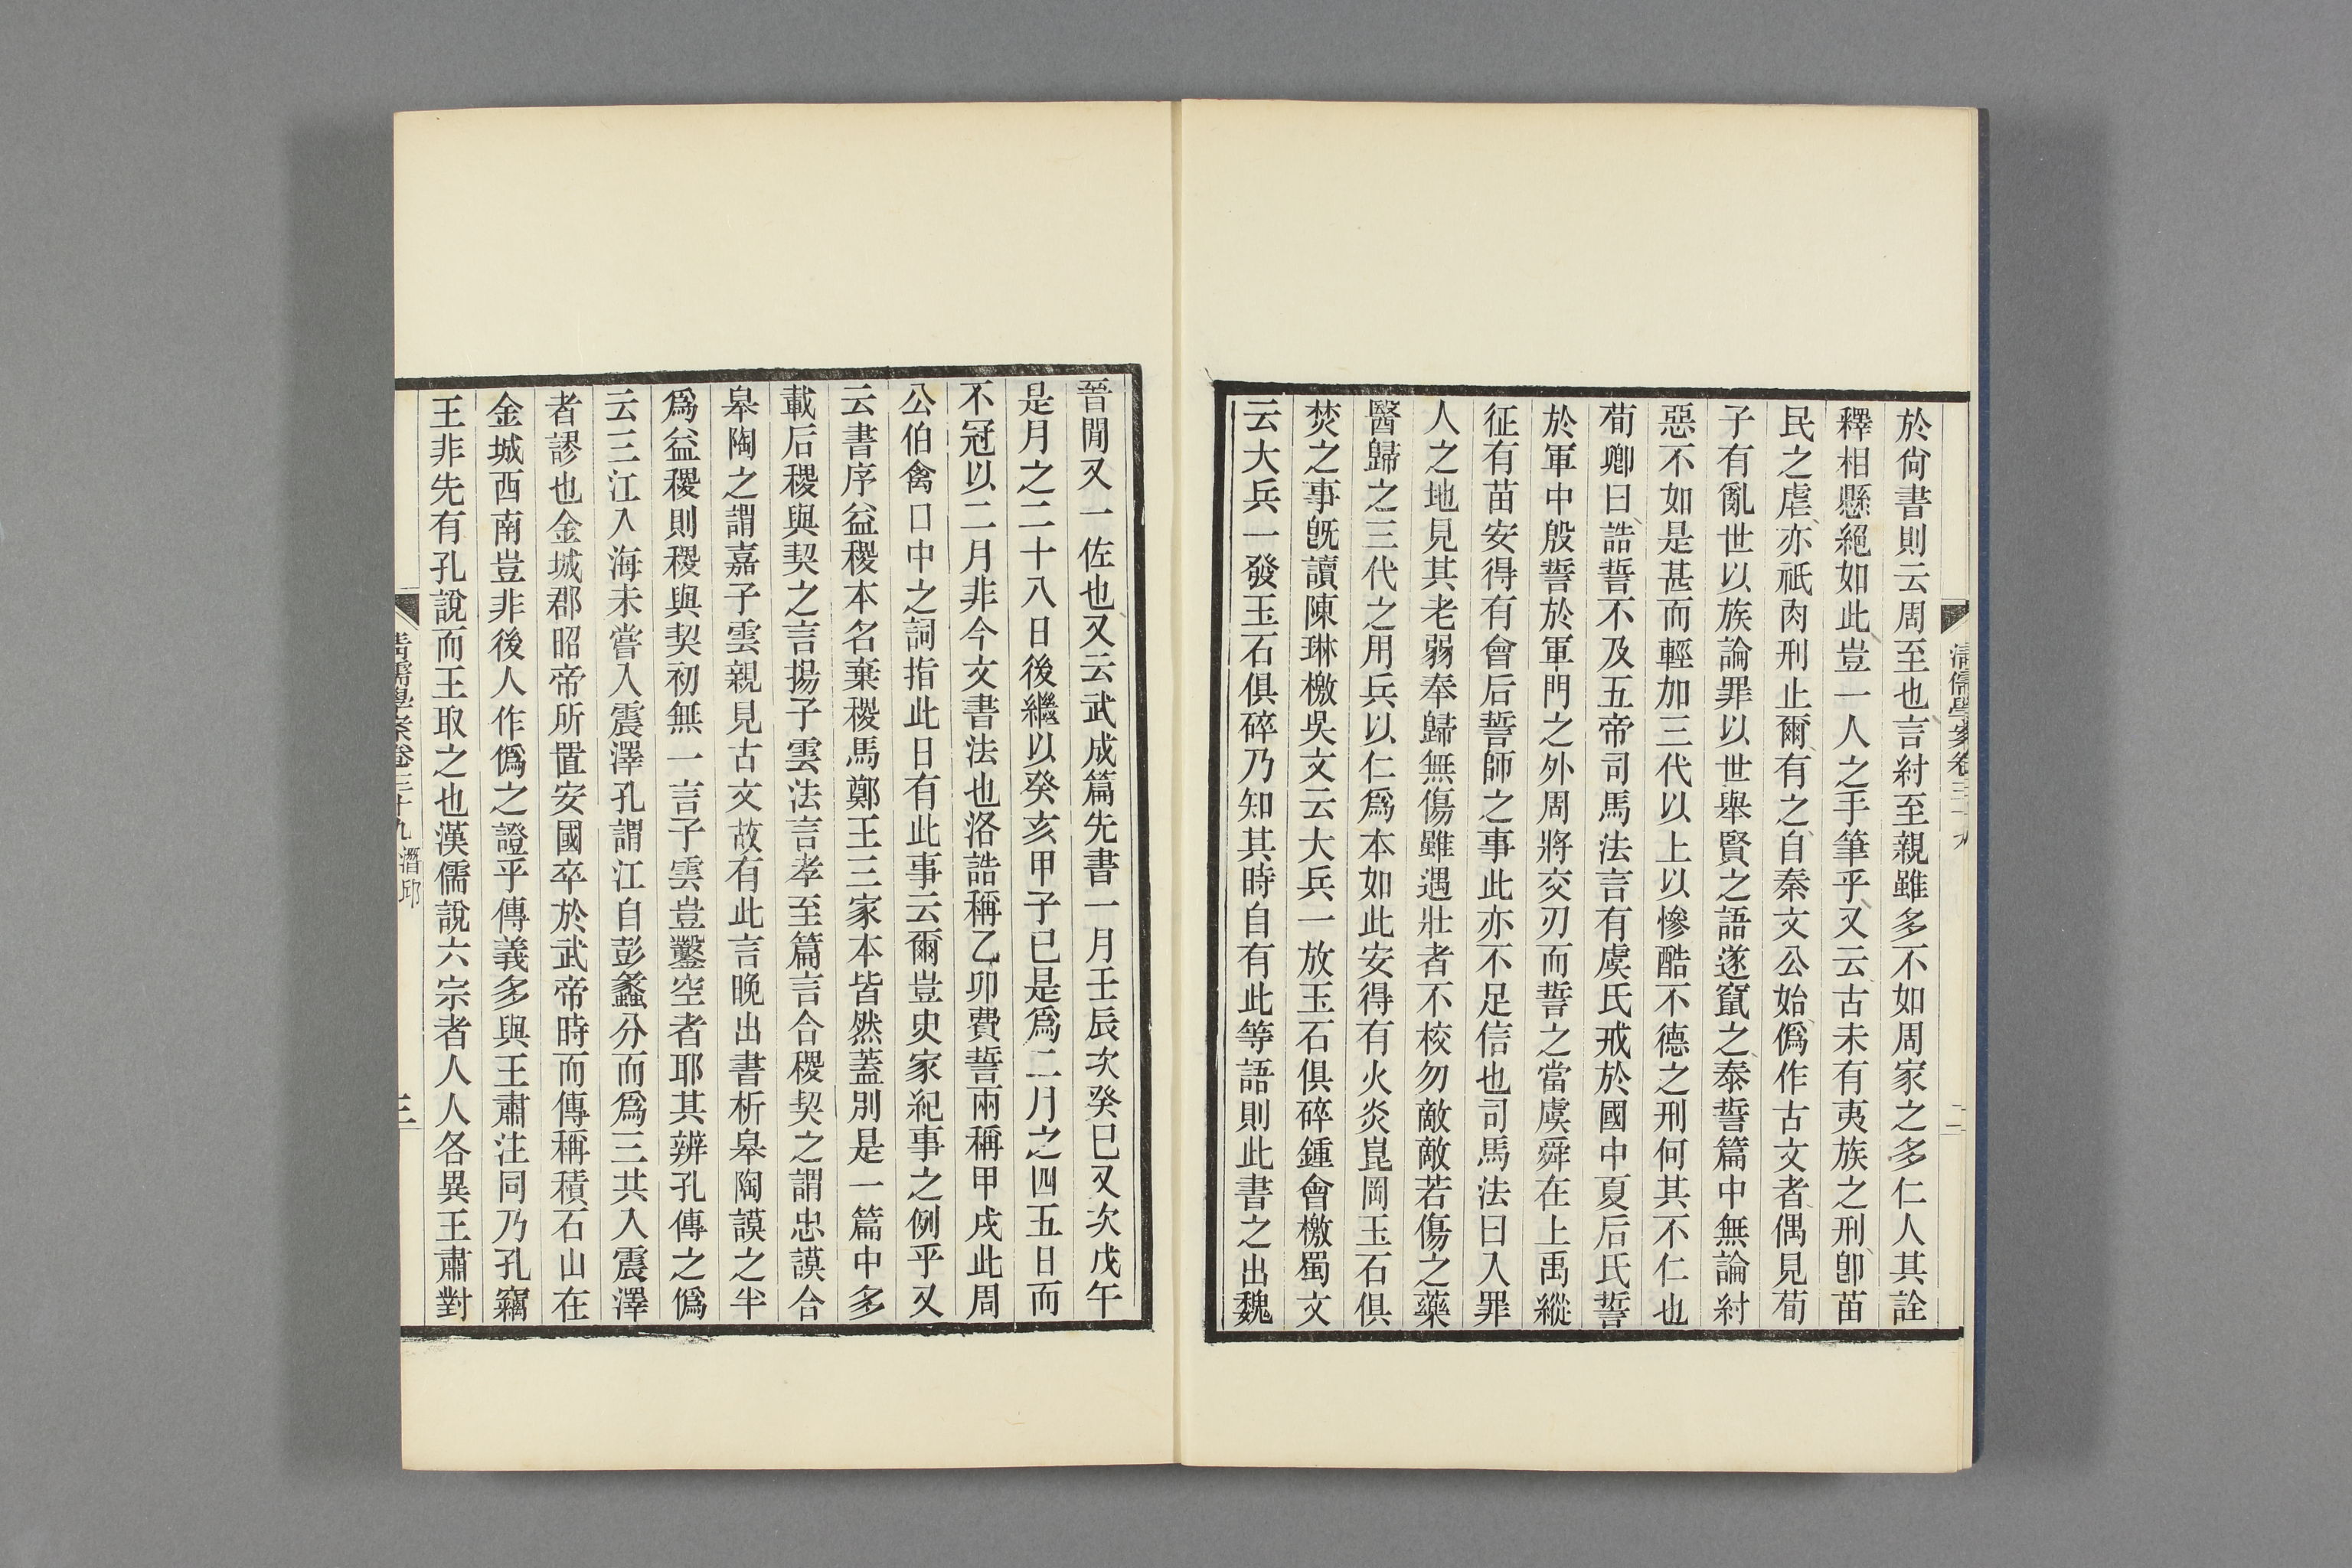 於尙書則云周至也言紂至親雖多不如周家之多仁人其詮
釋相懸絕如此豈一人之手筆乎又云古未有夷族之刑卽苗
民之虐亦祇肉刑止爾有之自秦文公始僞作古文者偶見荀
子有亂世以族論罪以世舉賢之語遂竄之泰誓篇中無論紂
惡不如是甚而輕加三代以上以慘酷不德之刑何其不仁也
荀卿曰誥誓不及五帝司馬法言有虞氏戒於國中夏后氏誓
於軍中殷誓於軍門之外周將交刃而誓之當虞舜在上禹縱
征有苗安得有會后誓師之事此亦不足信也司馬法曰入罪
人之地見其老弱奉歸無傷雖遇壯者不校勿敵敵若傷之藥
醫歸之三代之用兵以仁爲本如此安得有火炎崑岡玉石俱
焚之事旣讀陳琳檄吳文云大兵一放玉石俱碎鍾會檄蜀文
云大兵一發玉石俱碎乃知其時自有此等語則此書之出魏
清儒學案卷三十九
二
晉閒又一佐也又云武成篇先書一月壬辰次癸巳又次戊午
是月之二十八日後繼以癸亥甲子已是爲二月之四五日而
不冠以二月非今文書法也洛誥稱乙卯費誓兩稱甲戌此周
公伯禽口中之詞指此日有此事云爾豈史家紀事之例乎又
云書序益稷本名棄稷馬鄭王三家本皆然蓋別是一篇中多
載后稷與契之言揚子雲法言孝至篇言合稷契之謂忠謨合
皋陶之謂嘉子雲親見古文故有此言晚出書析皋陶謨之半
爲益稷則稷與契初無一言子雲豈鑿空者耶其辨孔傳之僞
云三江入海未嘗入震澤孔謂江自彭蠡分而爲三共入震澤
者謬也金城郡昭帝所置安國卒於武帝時而傳稱積石山在
金城西南豈非後人作僞之證乎傳義多與王肅注同乃孔竊
王非先有孔說而王取之也漢儒說六宗者人人各異王肅對
清儒學案卷三十九 潛邱
三